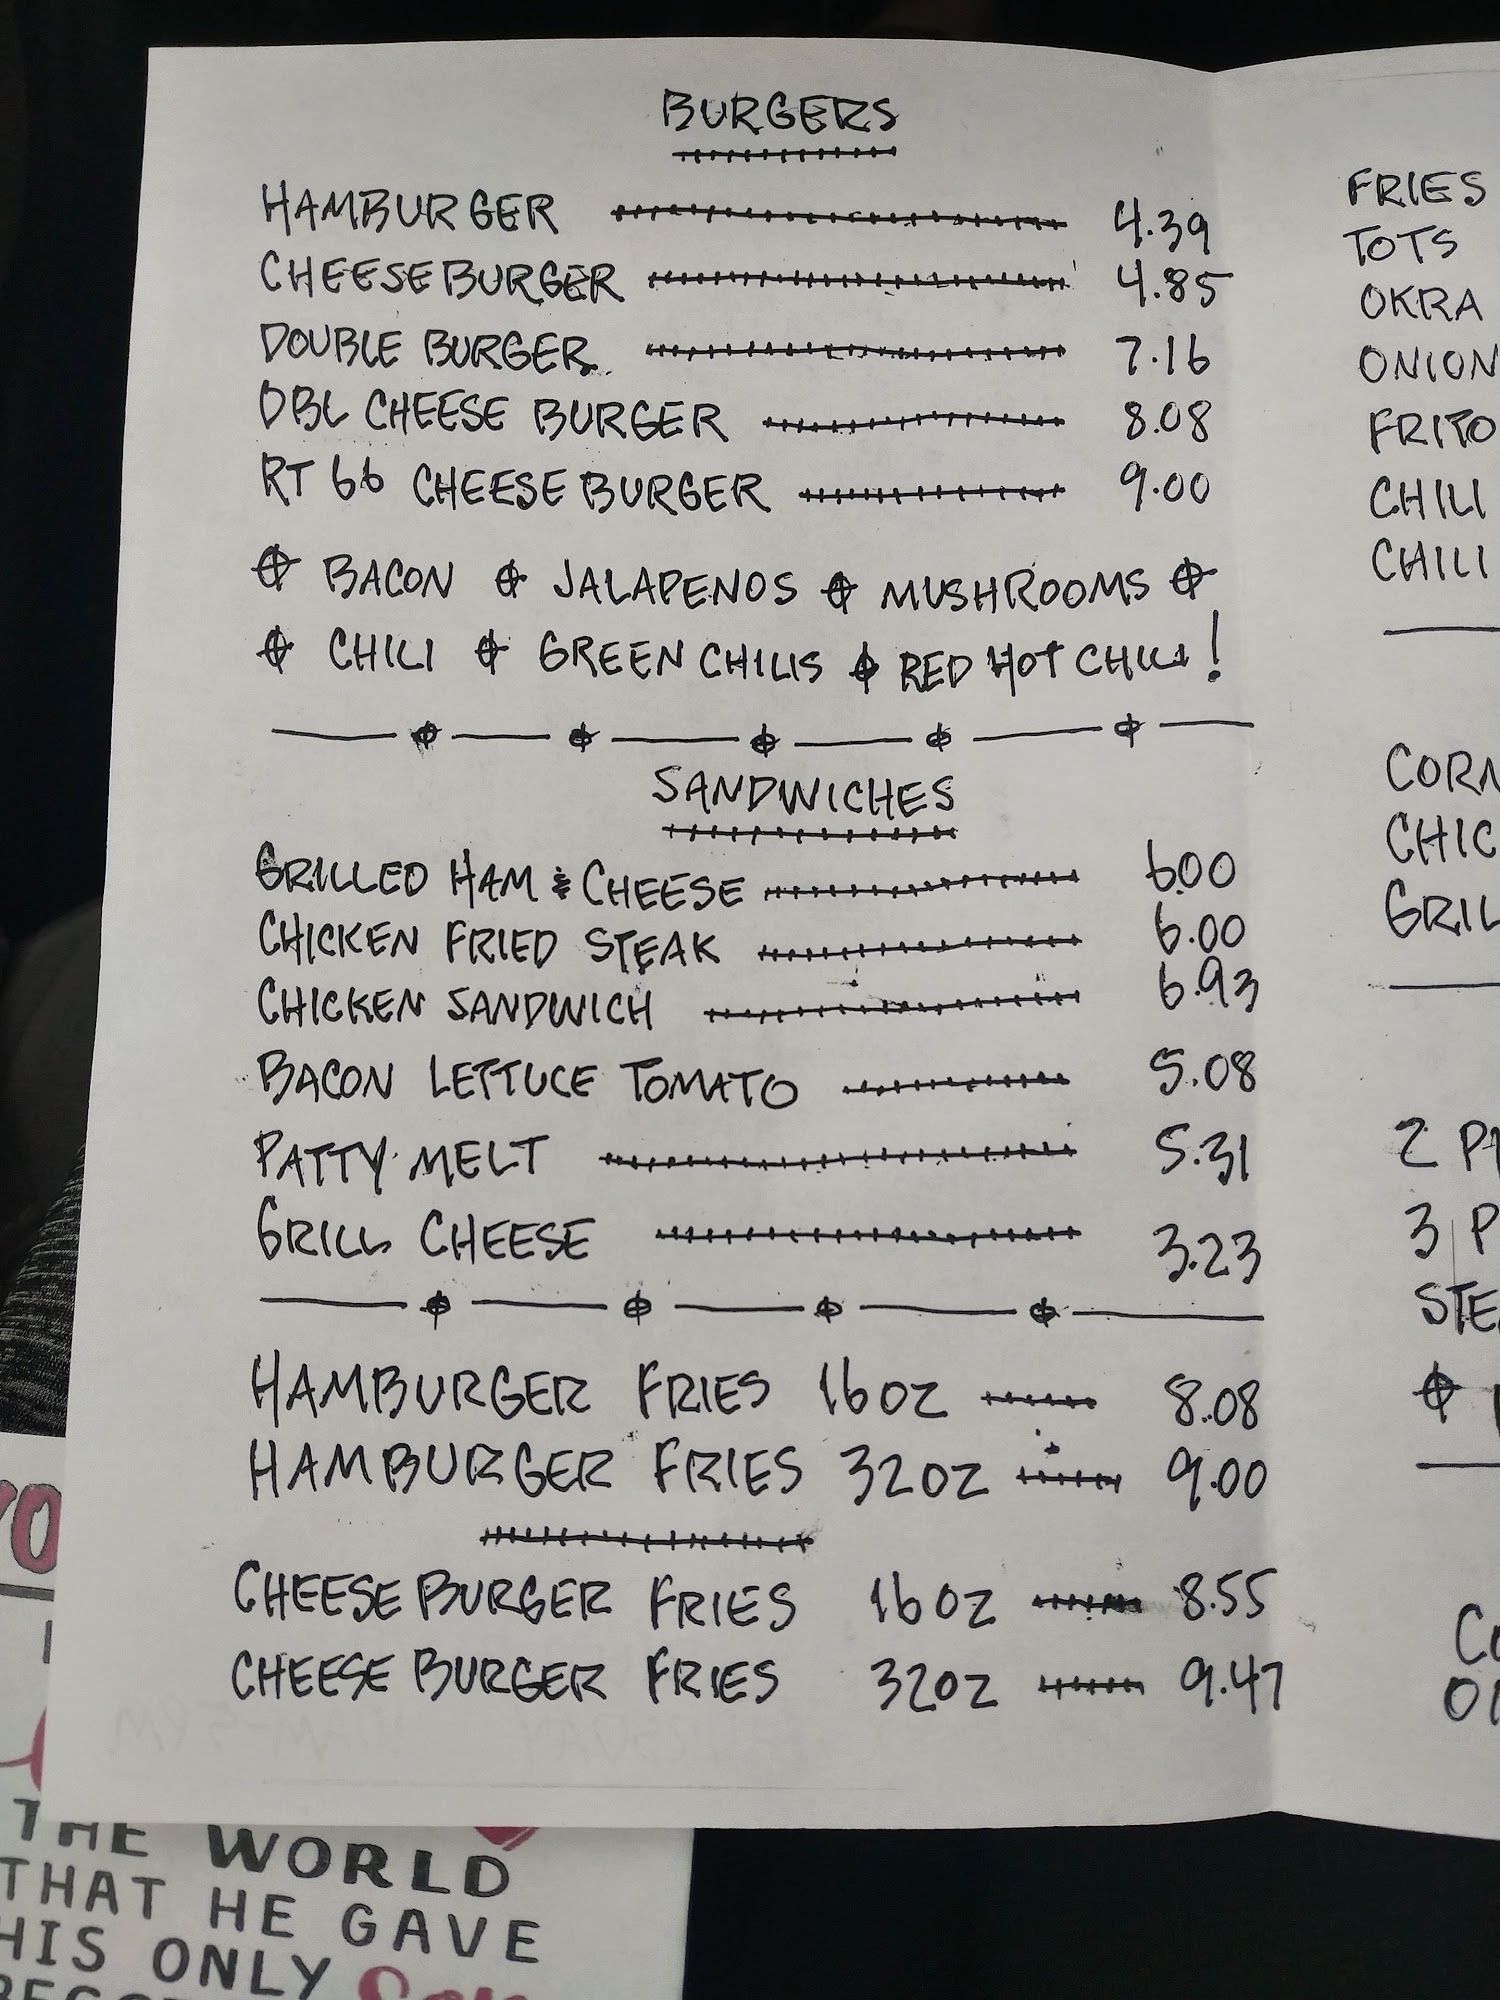 BURGERS
HAMBURGER 4.39
CHEESEBURGER 4.85
DOUBLE BURGER 7.16
DBL CHEESE BURGER 8.08
RT 66 CHEESEBURGER 9.00
BACON JALAPENOS MUSHROOMS
CHILI GREEN CHILIS RED HOT CHILI!
SANDWICHES
GRILLED HAM & CHEESE 6.00
CHICKEN FRIED STEAK 6.00
CHICKEN SANDWICH 6.93
BACON LETTUCE TOMATO 5.08
PATTY MELT 5.31
GRILL CHEESE 3.23
HAMBURGER FRIES 16OZ 8.08
HAMBURGER FRIES 32OZ 9.00
CHEESEBURGER FRIES 16OZ 8.55
CHEESEBURGER FRIES 32OZ 9.47
FRIES
TOTS
OKRA
ONION
FRITO
CHILI
CHILI
CORN
CHIC
GRIL
2 P
3 P
STE
THE WORLD
THAT HE GAVE
HIS ONLY Son